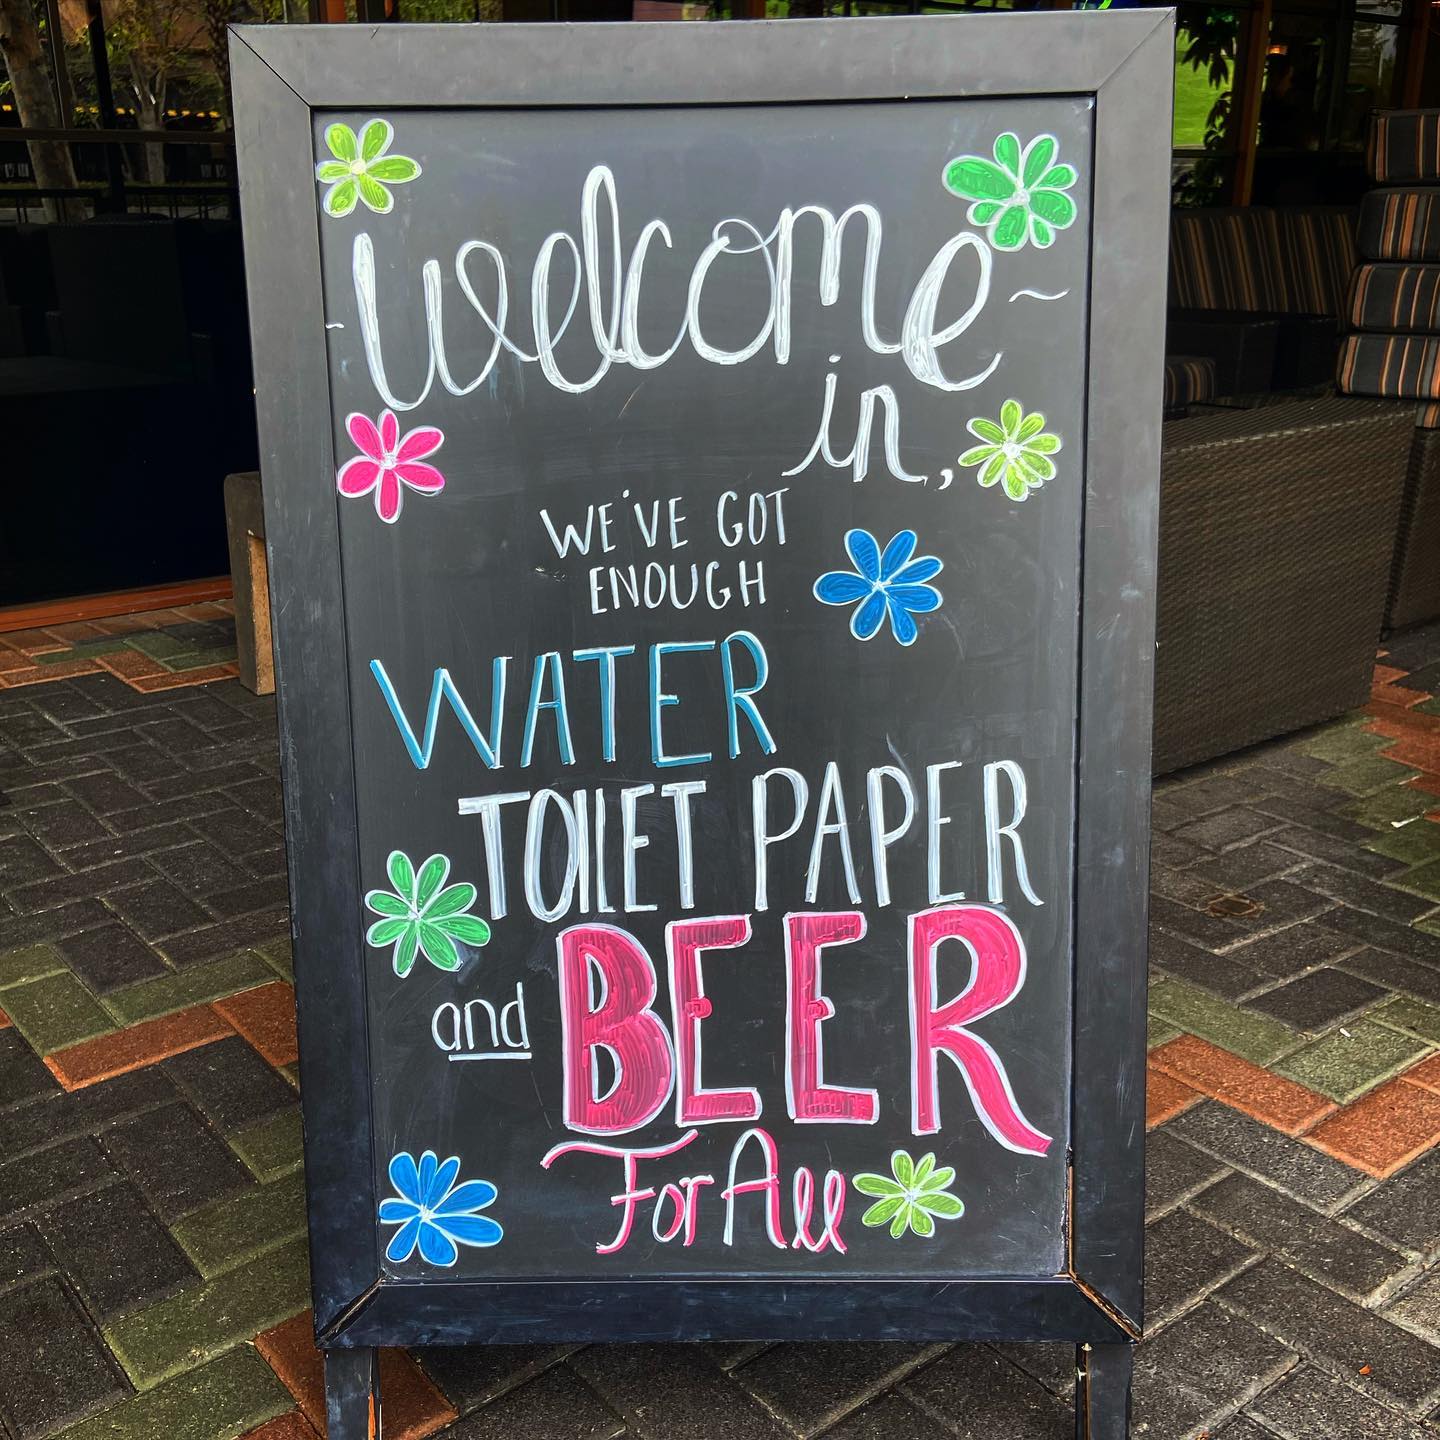 ~ Welcome ~
in,
WE'VE GOT
ENOUGH
WATER
TOILET PAPER
and BEER
For All